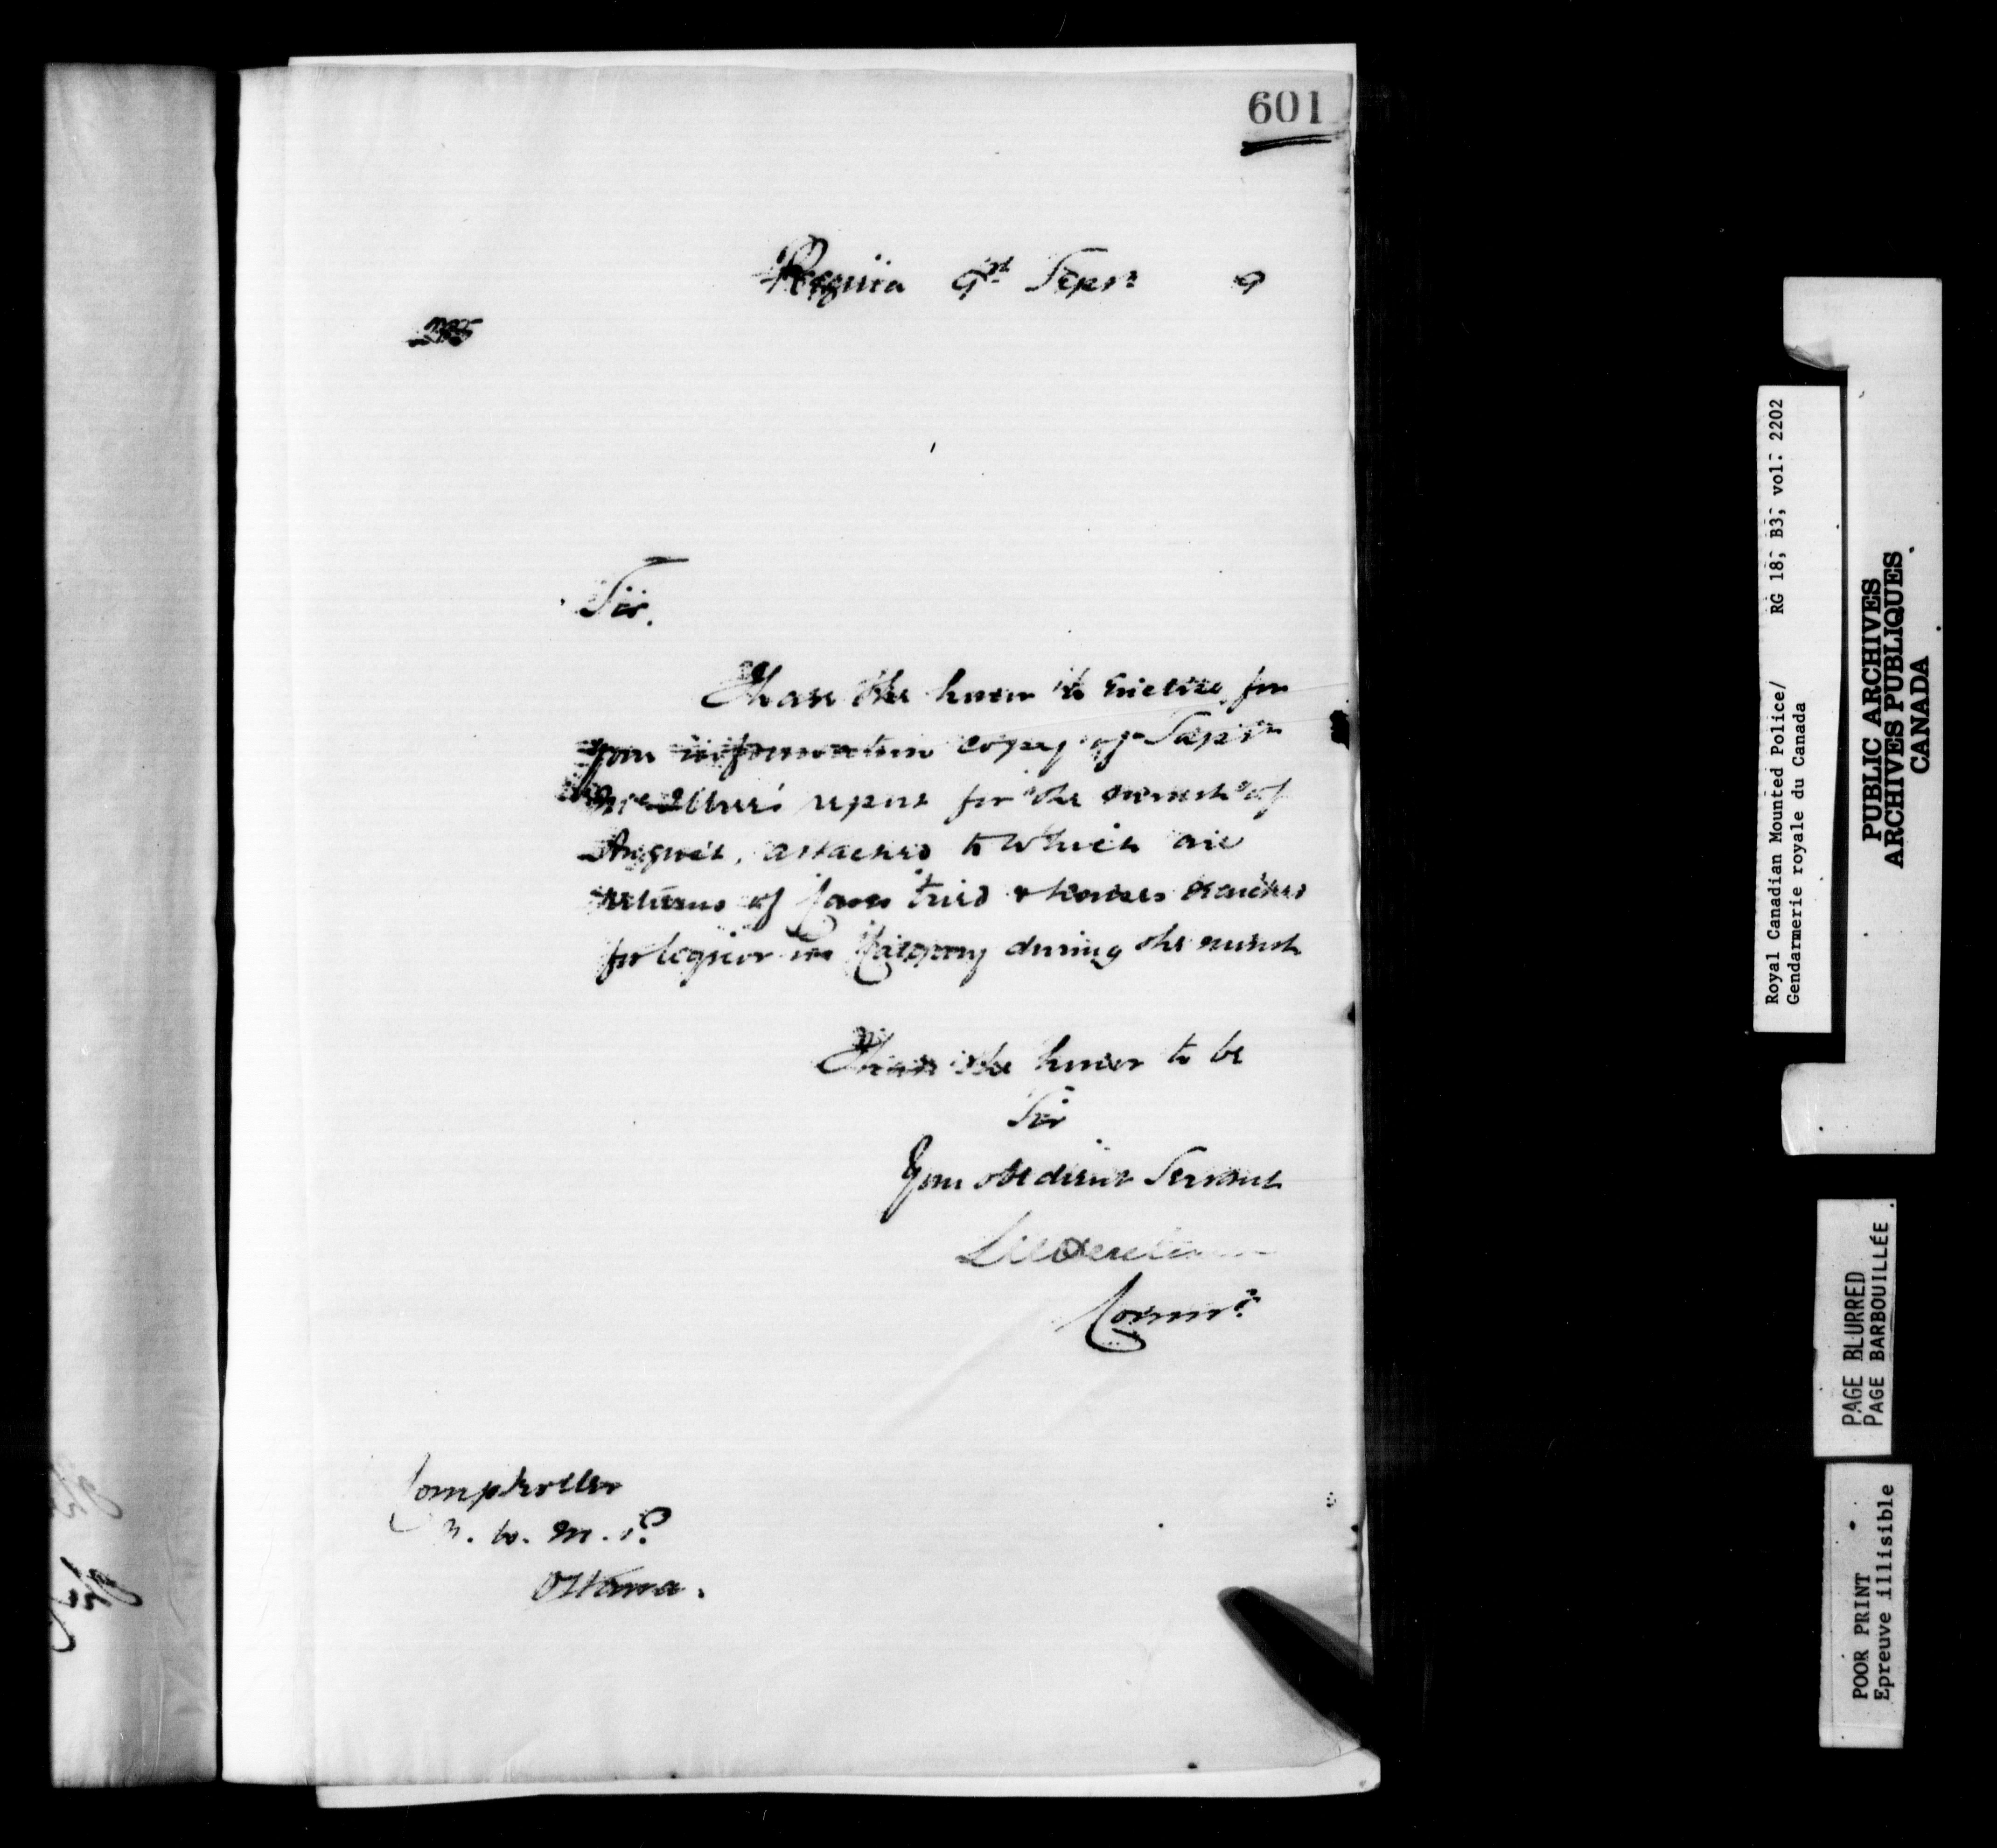 601
Regina 9th Sept 9
Sir.
I have the honor to enclose for
your information copy of Supt
report for the month of
August, attached to which are
returns of Cases tried & houses searched
for liquor in Calgary during the month
I have the honor to be
Sir
Your obedient Servant
Commr
Comptroller
N. W. M. P.
Ottawa.
Royal Canadian Mounted Police/ RG 18; B3; vol: 2202
Gendarmerie royale du Canada
PUBLIC ARCHIVES
ARCHIVES PUBLIQUES
CANADA
PAGE BLURRED
PAGE BARBOUILLÉE
POOR PRINT
Epreuve illisible